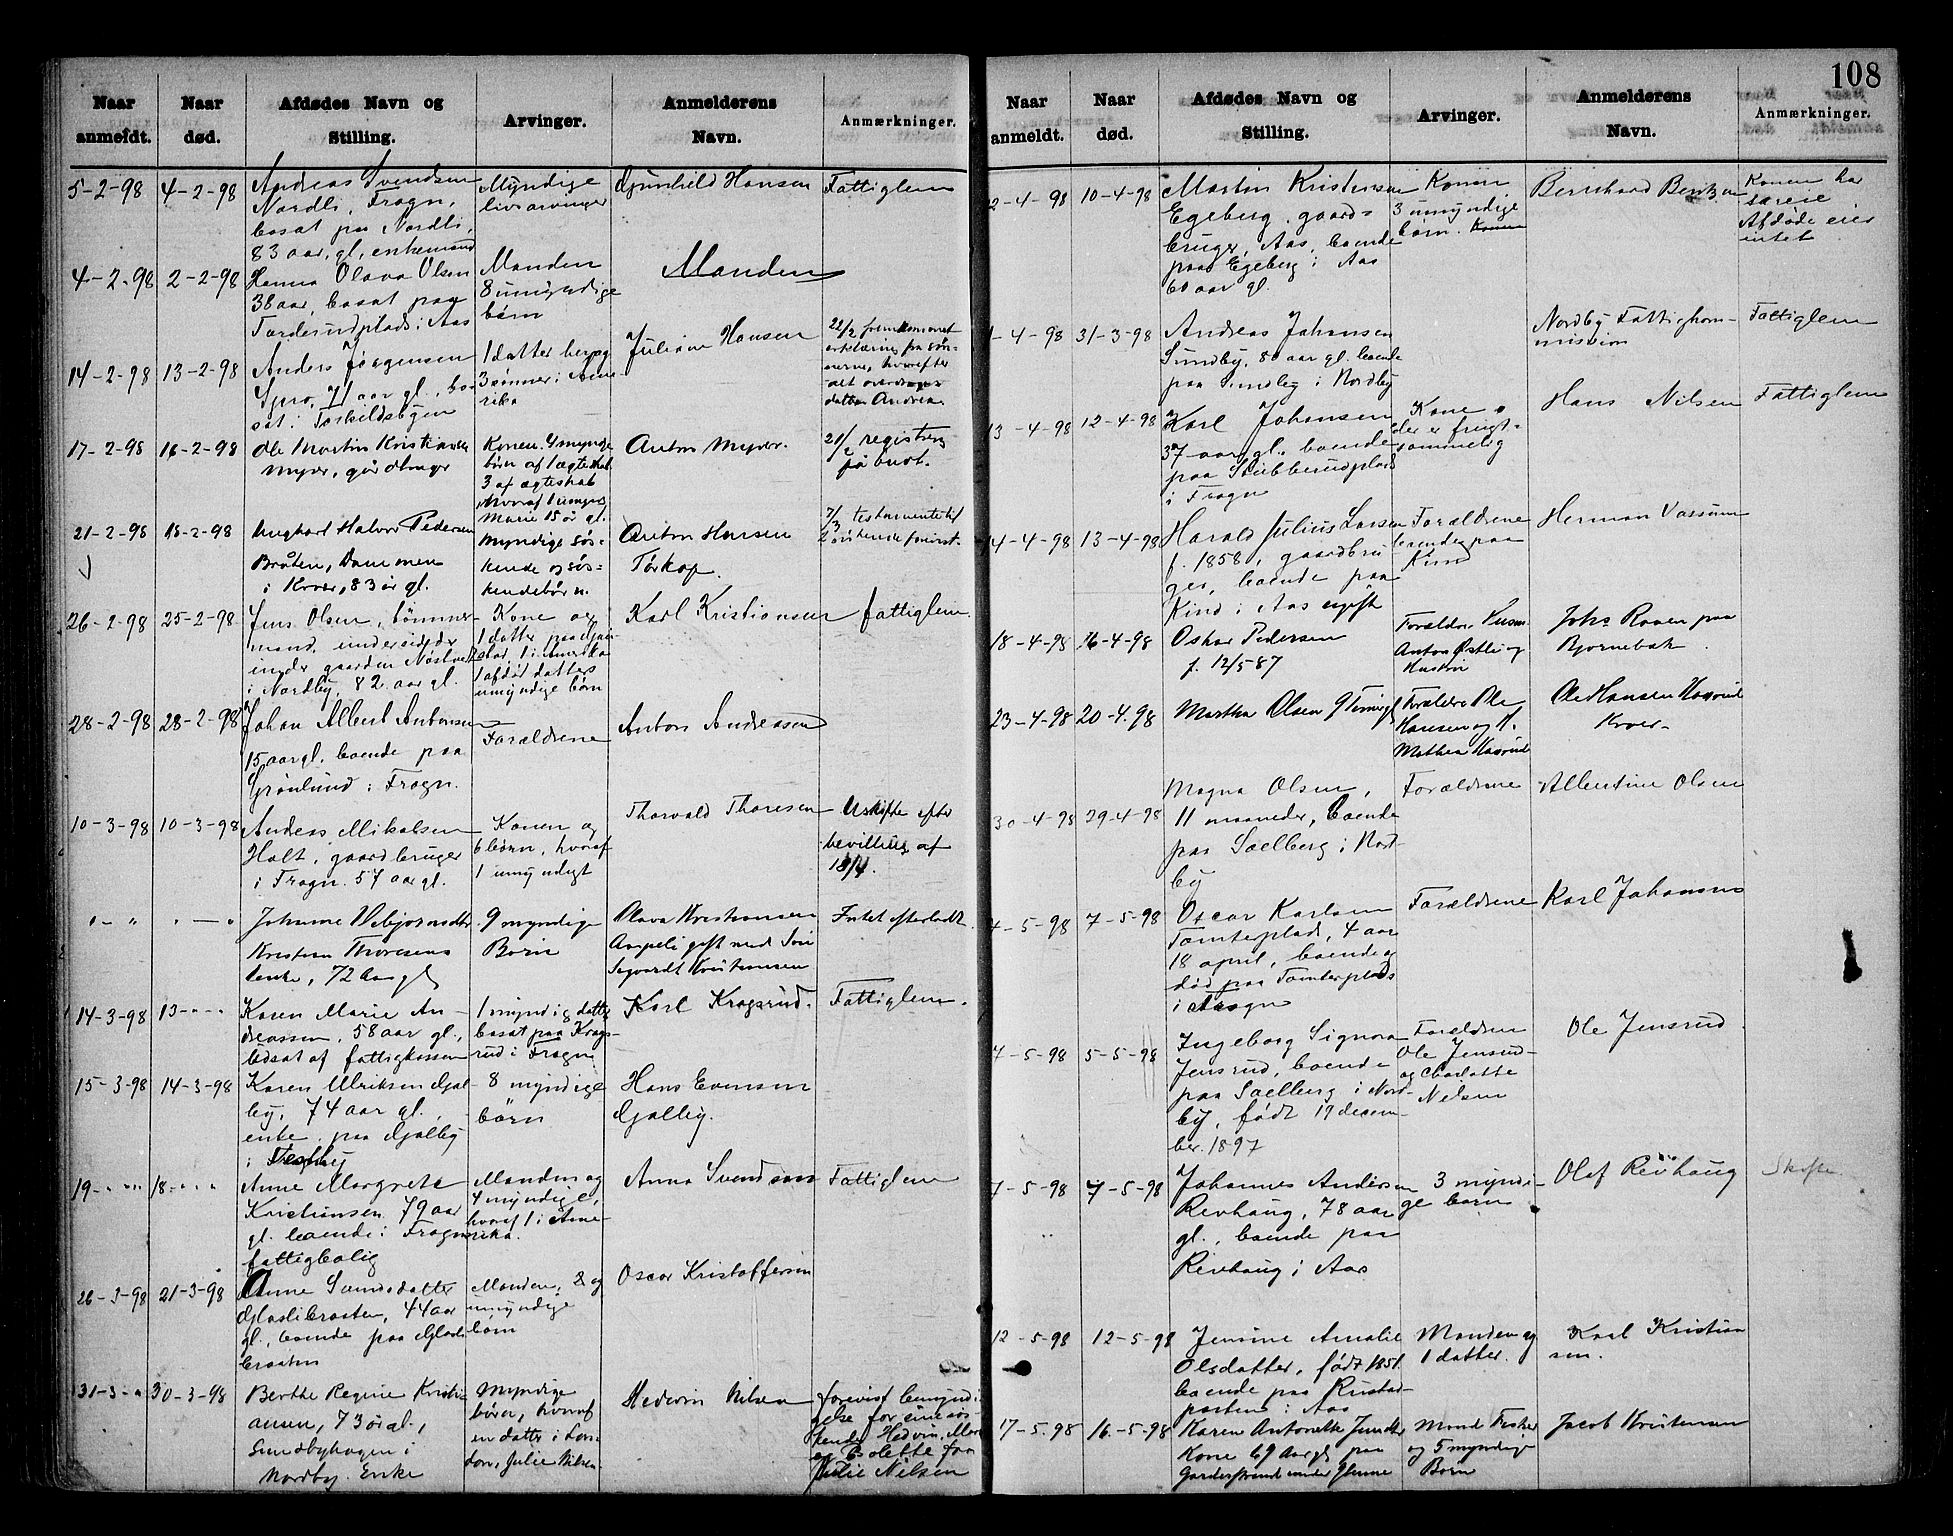 108
Naar anmeldt.
Naar død.
Afdødes Navn og Stilling.
Arvinger.
Anmelderens Navn.
Anmærkninger.
5-2-98
4-2-98
Andreas Svendsen
Nordli, Frogn,
bosat paa Nordli,
83 aar gl, enkemand
Myndige
livsarvinger
Gunhild Hansen
Fattiglem
4-2-98
2-2-98
Hanna Olava Olsen
38 aar, bosat paa
i Aas
Manden
8 umyndige
børn
Manden
14-2-98
13-2-98
Anders Jørgensen
Spro, 71 aar gl., bo-
sat i Torkildsbyen
1 datter her og
3 sønner i Ame-
rika
Juliane Hansen
22/2 fremkommet
erklæring fra søn-
nerne, hvorefter
alt overdrages
datter Andrea.
17-2-98
16-2-98
Ole Martin Kristiansen
Myrer, gårdbruger
Konen. 4 myndige
børn af 1 ægteskab
3 af ægteskab
hvoraf 1 umyndig
Marie 15 år gl.
Anton Myrer.
21/2 registrering
på budt.
21-2-98
18-2-98
Halvor Pedersen
Bråten,
i Kroer, 83 år gl.
myndige søs-
kende og søs-
kendebørn.
Anton Hansen
Torkop.
7/3 testamente til
26-2-98
25-2-98
Jens Olsen, tømmer-
mand,
under gaarden
i Nordby, 82 aar gl.
Kone og
1 datter paa
1 i Amerika
1 afdød datters
umyndige børn
Karl Kristiansen
fattiglem.
28-2-98
28-2-98
Johan Albert Antonsen
15 aar gl. boende paa
Grønlund i Frogn.
Forældrene
Anton Andreassen
10-3-98
10-3-98
Andreas Mikalsen
Holt, gaardbruger
i Frogn. 57 aar gl.
Konen og
6 børn, hvoraf
1 umyndigt
Thorvald Thoresen
Uskifte efter
bevilling af
18/4.
" - "
" — "
Johanne
Kristian Thoresens
enke, 72 Aar gl
9 myndige
Børn
Olava Kristiansen
gift med
Kristiansen
Intet efterladt.
14-3-98
13-"-"
Karen Marie An-
dreassen, 58 aar gl.,
udsat af fattigkassen
1 myndig datter
bosat paa Krogs-
rud i Frogn
Karl Krogsrud.
Fattiglem.
15-3-98
14-3-98
Karen Ulriksen Gjøl-
by, 74 aar gl.,
enke paa Gjølby
i Frogn
8 myndige
børn
Hans Evensen
Gjølby.
19-"-"
18-"-"
Anne Margrete
Kristiansen 79 aar
gl. boende i Frogn
fattigbolig
Manden og
4 myndige,
hvoraf 1 i Ame-
rika.
Anna Svendsen
Fattiglem
26-3-98
21-3-98
Anne
44 aar
gl., boende paa
braaten
Manden, 2 og
umyndige
børn
Oscar Kristoffersen
31-3-"
30-3-98
Berthe Regine Kristi-
ansen, 73 år gl.,
Sundbyhagen i
Nordby. Enke
Myndige
børn, hvoraf
en datter i Lon-
don, Julie Nilsen.
Hedevin Nilsen
forevist bemyndi-
gelse for sine søs-
kende Hedvin,
Julie Nielsen
2-4-98
10-4-98
Martin Kristensen
Egeberg, gaard-
bruger, Aas, boende
paa Egeberg i Aas
60 aar gl.
Konen
3 umyndige
børn. Konen
Bernhard Berntzen
Konen har
særeie
Afdøde eier
intet.
1-4-98
31-3-98
Andreas Johansen
Sundby, 80 aar gl. boende
paa Sundby i Nordby
Nordby Fattigkom-
mission
Fattiglem
13-4-98
12-4-98
Karl Johansen
37 aar gl., boende
paa Stubberudplads
i Frogn
Kone
der er frugt-
sommelig
Hans Nilsen
Fattiglem
14-4-98
13-4-98
Harald Julius Larsen
f. 1858, gaardbru
ger, boende paa
Kind i Aas ugift
Forældrene
boende paa
Kind
Herman Vassum
18-4-98
16-4-98
Oskar Pedersen
f. 12/5-87
Forældre Husm.
Anton Østli og
Hustru
Johs Raaen paa
Bjørnebæk.
23-4-98
20-4-98
Martha Olsen 9 Timer gl
Forældre Ole
Hansen og
Mathea Haarud
Ole Hansen Haarud
Kroer.
30-4-98
29-4-98
Magna Olsen,
11 maaneder, boende
paa Saelberg i Nord-
by
Forældrene
Albertine Olsen
4-5-98
7-5-98
Oscar Karlsen
Tomterplads, 4 aar
18 april, boende og
død paa Tomterplads
i Frogn
Forældrene
Karl Johansen
7-5-98
5-5-98
Ingeborg Signora
Jensrud, boende
paa Saelberg i Nord-
by, født 17 decem-
ber 1897
Forældrene
Ole Jensrud
og Charlotte
Nilsen
Ole Jensrud
7-5-98
7-5-98
Johannes Andersen
Revhaug, 78 aar
gl., boende paa
Revhaug i Aas
3 myndi-
ge børn
Olaf Revhaug
Skifte
12-5-98
12-5-98
Jensine Amalie
Olsdatter, født 1851
boende paa Rustad-
porten i Aas
Manden og
1 datter.
Karl Kristian
sen.
17-5-98
16-5-98
Karen Antonette
Kone 69 Aar gl paa
under Glenne
Mand Fisker
og 5 myndige
Børn
Jacob Kristiansen